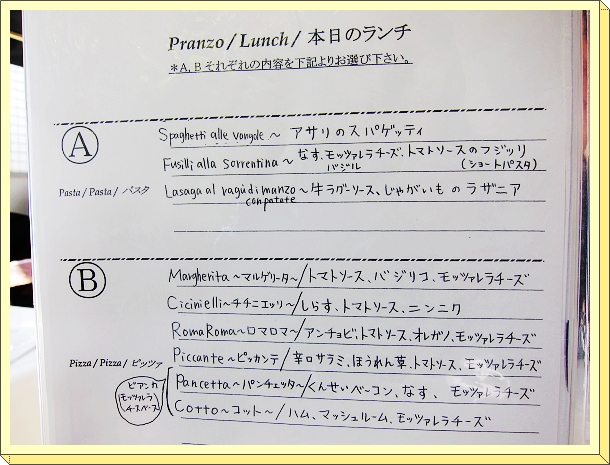 Pranzo / Lunch / 本日のランチ
*A, B それぞれの内容を下記よりお選び下さい。
A
Pasta / Pasta / パスタ
Spaghetti alle vongole ~ アサリのスパゲッティ
Fusilli alla sorrentina ~ なす、モッツァレラチーズ、トマトソースのフジッリ
バジル (ショートパスタ)
Lasaga al ragù di manzo ~ 牛ラグーソース、じゃがいものラザニア
conpatate
B
Pizza / Pizza / ピッツァ
Margherita ~マルゲリータ~ / トマトソース、バジリコ、モッツァレラチーズ
Cicinielli ~チチニエッリ~ / しらす、トマトソース、ニンニク
RomaRoma ~ロマロマ~ / アンチョビ、トマトソース、オレガノ、モッツァレラチーズ
Piccante ~ピッカンテ / 辛口サラミ、ほうれん草、トマトソース、モッツァレラチーズ
ビアンカ
モッツァレラ
チーズベース
Pancetta ~パンチェッタ~ / くんせいベーコン、なす、モッツァレラチーズ
Cotto ~コット~ / ハム、マッシュルーム、モッツァレラチーズ